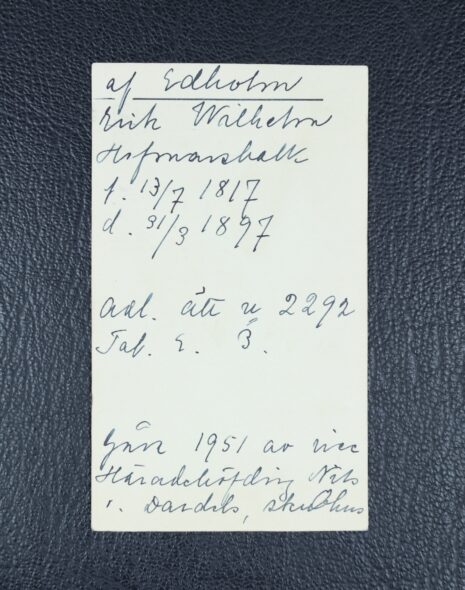 af Edholm
Erik Wilhelm
Hofmarskalk
f. 13/7 1817
d. 31/3 1897
Adl. ätt n 2292
Tab. 3.
Gåva 1951 av vice
Häradshöfding Nils
v. Dardels,